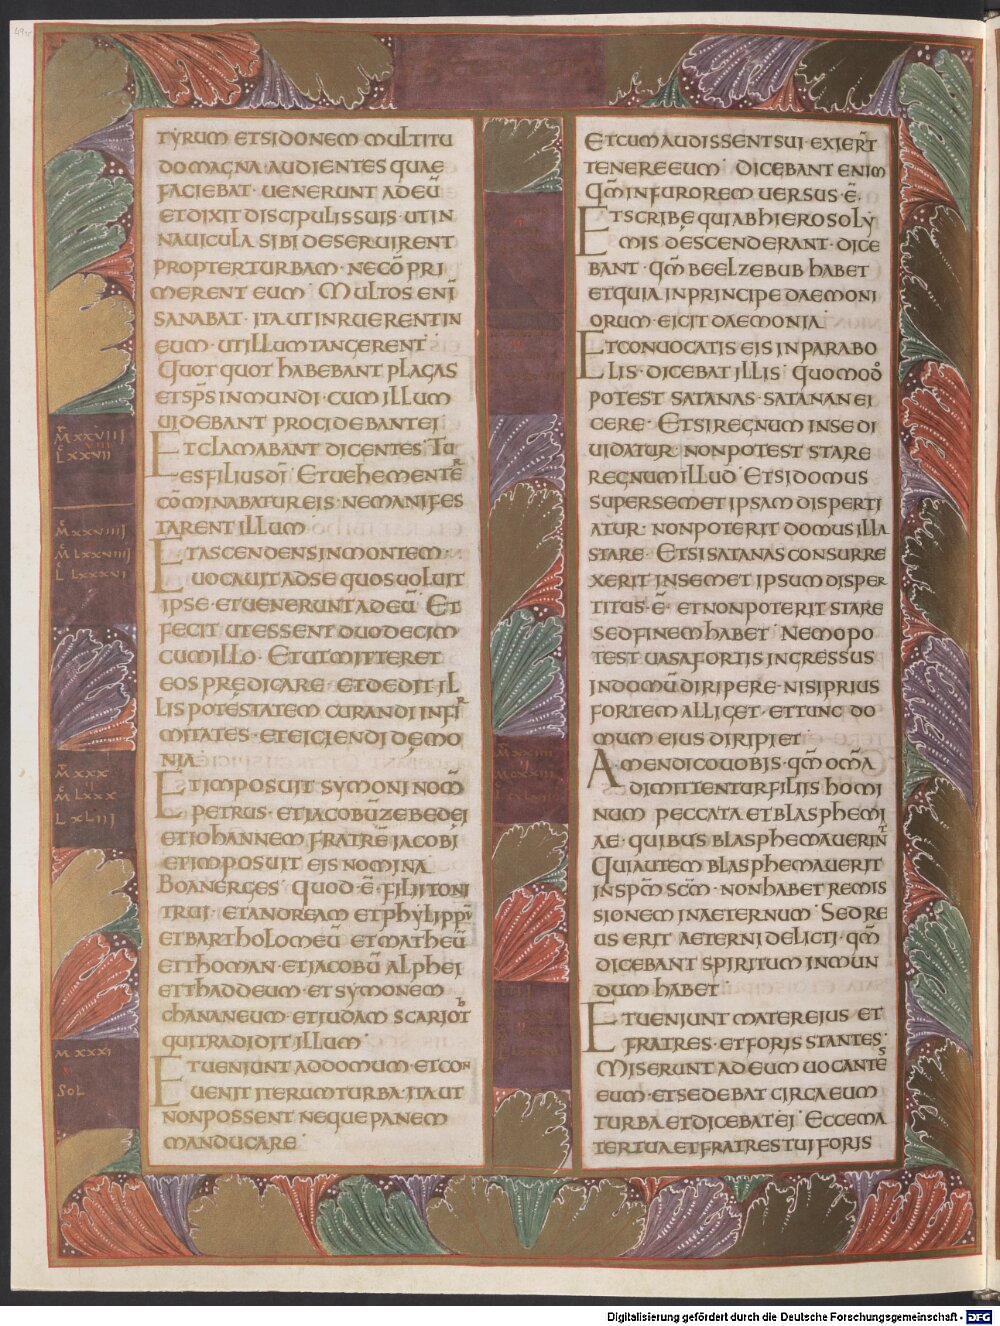 TYRUM ET SIDONEM MULTITU
DO MAGNA· AUDIENTES QUAE
FACIEBAT· UENERUNT AD EŪ
ET DIXIT DISCIPULIS SUIS· UT IN
NAUICULA SIBI DESERUIRENT
PROPTER TURBAM· NE CŌPRI
MERENT EUM· MULTOS ENĪ
SANABAT· ITA UT INRUERENT IN
EUM· UT ILLUM TANGERENT
QUOTQUOT HABEBANT PLAGAS
ET SP̄S INMUNDI· CUM ILLUM
UIDEBANT PROCIDEBANT EI
ET CLAMABANT DICENTES· TU
ES FILIUS DĪ· ET UEHEMENTER
CŌMINABATUR EIS· NE MANIFES
TARENT ILLUM
ET ASCENDENS IN MONTEM·
UOCAUIT AD SE QUOS UOLUIT
IPSE· ET UENERUNT AD EŪ· ET
FECIT UT ESSENT DUODECIM
CUM ILLO· ET UT MITTERET
EOS PREDICARE· ET DEDIT IL
LIS POTESTATEM CURANDI INFIR
MITATES· ET EICIENDI DEMO
NIA
ET IMPOSUIT SYMONI NOM̄
PETRUS· ET IACOBŪ ZEBEDEI
ET IOHANNEM FRATRĒ IACOBI
ET IMPOSUIT EIS NOMINA
BOANERGES· QUOD· Ē· FILII TONI
TRUI· ET ANDREAM ET PHYLIPPŪ
ET BARTHOLOMEŪ ET MATHEŪ
ET THOMAN· ET IACOBŪ ALPHEI
ET THADDEUM· ET SYMONEM
CHANANEUM· ET IUDAM SCARIOT
QUI TRADIDIT ILLUM
ET UENIUNT AD DOMUM· ET CON
UENIT ITERUM TURBA· ITA UT
NON POSSENT NEQUE PANEM
MANDUCARE
M̄ XXVIII
L̄ XXVII
M̄ XXVIIII
M̄ LXXVIIII
L LXXXVI
M̄ XXX
M̄ LXXX
L XLIII
M XXXI
SOL
ET CUM AUDISSENT SUI· EXIER̄T
TENERE EUM· DICEBANT ENIM
QM̄ IN FUROREM UERSUS· Ē·
ET SCRIBE QUI AB HIEROSOLY
MIS DESCENDERANT· DICE
BANT· QM̄ BEELZEBUB HABET
ET QUIA IN PRINCIPE DAEMONI
ORUM· EICIT DAEMONIA
ET CONUOCATIS EIS IN PARABO
LIS· DICEBAT ILLIS· QUOMODO
POTEST SATANAS· SATANAN EI
CERE· ET SI REGNUM IN SE DI
UIDATUR· NON POTEST STARE
REGNUM ILLUD· ET SI DOMUS
SUPER SEMET IPSAM DISPERTI
ATUR· NON POTERIT DOMUS ILLA
STARE· ET SI SATANAS CONSURRE
XERIT IN SEMET IPSUM DISPER
TITUS· Ē· ET NON POTERIT STARE
SED FINEM HABET· NEMO PO
TEST UASA FORTIS INGRESSUS
IN DOMŪ DIRIPERE· NISI PRIUS
FORTEM ALLIGET· ET TUNC DO
MUM EIUS DIRIPIET
AMEN DICO UOBIS· QM̄ OM̄A
DIMITTENTUR FILIIS HOMI
NUM PECCATA ET BLASPHEMI
AE· QUIBUS BLASPHEMAUERINT
QUI AUTEM BLASPHEMAUERIT
IN SPM̄ SCM̄· NON HABET REMIS
SIONEM IN AETERNUM· SED RE
US ERIT AETERNI DELICTI· QM̄
DICEBANT SPIRITUM INMUN
DUM HABET
ET UENIUNT MATER EIUS ET
FRATRES· ET FORIS STANTES·
MISERUNT AD EUM UOCANTES
EUM· ET SEDEBAT CIRCA EUM
TURBA ET DICEBAT EI· ECCE MA
TER TUA ET FRATRES TUI FORIS
Digitalisierung gefördert durch die Deutsche Forschungsgemeinschaft - DFG